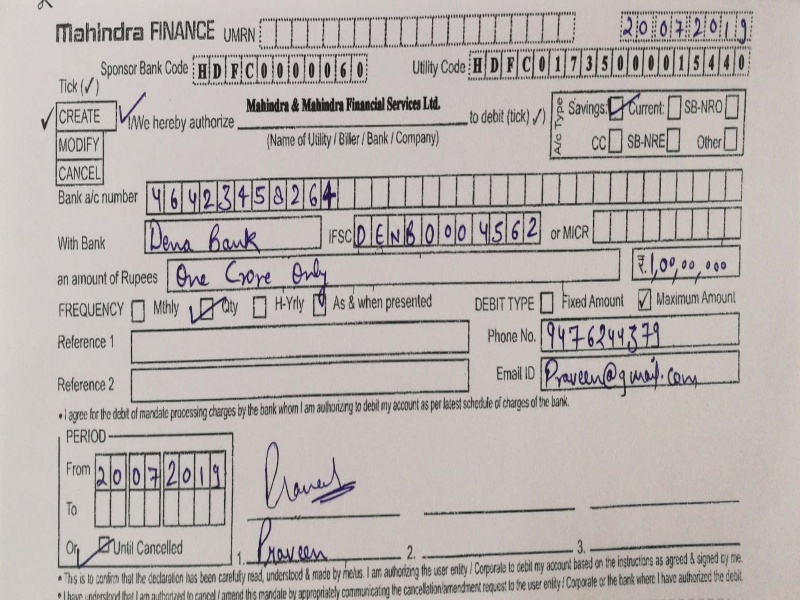 Mahindra FINANCE UMRN 20072019
Sponsor Bank Code HDFC0000060 Utility Code HDFC01735000015440
Tick (✓)
CREATE I/We hereby authorize Mahindra & Mahindra Financial Services Ltd. to debit (tick ✓) A/c Type Savings: Current: SB-NRO
MODIFY (Name of Utility / Biller / Bank / Company) CC SB-NRE Other
CANCEL
Bank a/c number 46423458264
With Bank Dena Bank IFSC DENB0004562 or MICR
an amount of Rupees One Crore Only ₹.1,00,00,000
FREQUENCY Mthly Qty H-Yrly As & when presented DEBIT TYPE Fixed Amount Maximum Amount
Reference 1 Phone No. 9476244379
Reference 2 Email ID Praveen@gmail.com
• I agree for the debit of mandate processing charges by the bank whom I am authorizing to debit my account as per latest schedule of charges of the bank.
PERIOD
From 20072019
To
Or Until Cancelled
Praveen
1. Praveen 2. 3.
• This is to confirm that the declaration has been carefully read, understood & made by me/us. I am authorizing the user entity / Corporate to debit my account based on the instructions as agreed & signed by me.
• I have understood that I am authorized to cancel / amend this mandate by appropriately communicating the cancellation/amendment request to the user entity / Corporate or the bank where I have authorized the debit.